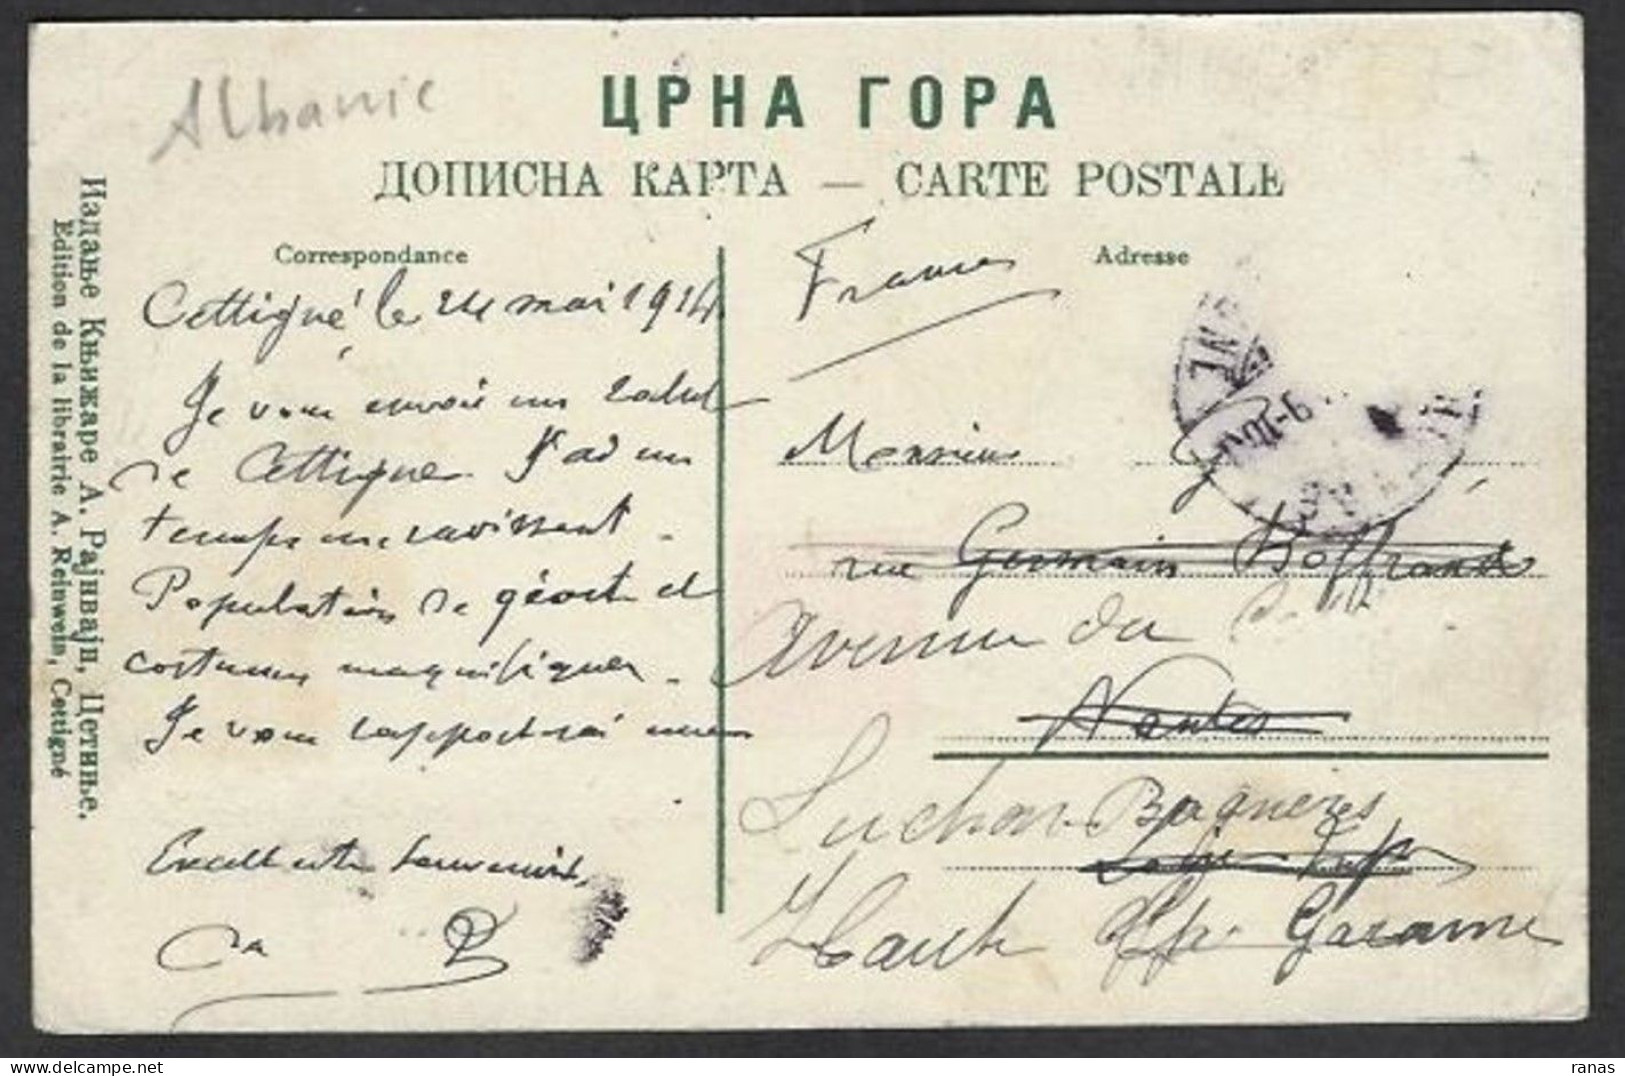 Albanie
ЦРНА ГОРА
ДОПИСНА КАРТА — CARTE POSTALE
Издање Књижаре А. Рајнвајн, Цетиње.
Edition de la librairie A. Reinwein, Cettigné
Correspondance
Cettigné le 24 mai 1914
Je vous envoie un salut
de Cettigne. J'ai un
temps ravissant.
Population de géants et
costumes magnifiques.
Je vous rapporterai
Excellents souvenirs,
Adresse
France
Monsieur
rue Germain Boffrand
Avenue du
Nantes
Luchon-Bagnères
Loire Infre
Haute Garonne
ranas